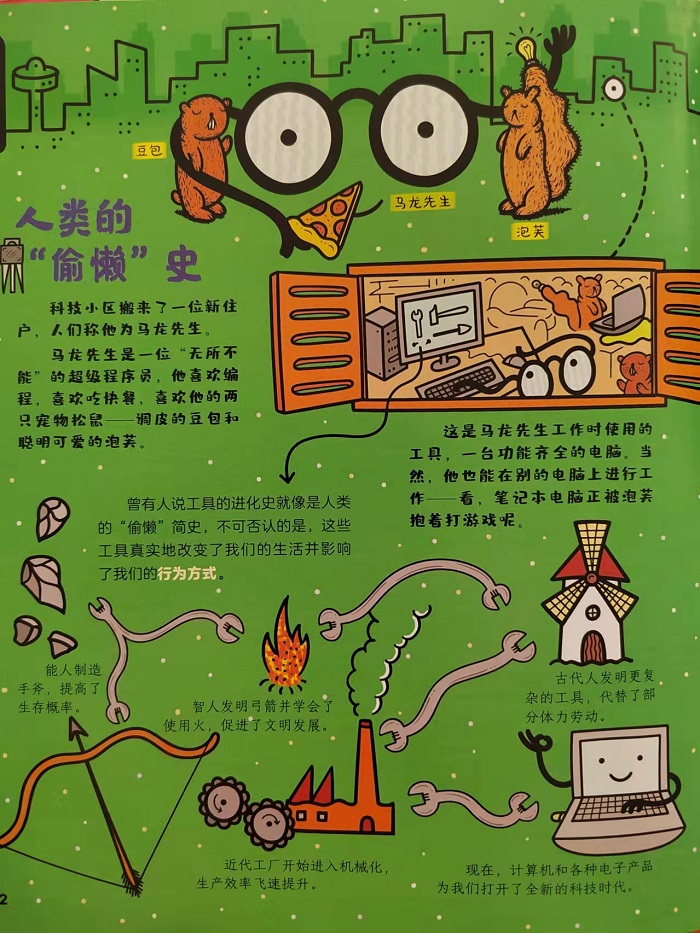 豆包
马龙先生
泡芙
人类的
“偷懒”史
科技小区搬来了一位新住
户,人们称他为马龙先生。
马龙先生是一位“无所不
能”的超级程序员,他喜欢编
程,喜欢吃快餐,喜欢他的两
只宠物松鼠——调皮的豆包和
聪明可爱的泡芙。
这是马龙先生工作时使用的
工具,一台功能齐全的电脑。当
然,他也能在别的电脑上进行工
作——看,笔记本电脑正被泡芙
抱着打游戏呢。
曾有人说工具的进化史就像是人类
的“偷懒”简史,不可否认的是,这些
工具真实地改变了我们的生活并影响
了我们的行为方式。
能人制造
手斧,提高了
生存概率。
智人发明弓箭并学会了
使用火,促进了文明发展。
古代人发明更复
杂的工具,代替了部
分体力劳动。
近代工厂开始进入机械化,
生产效率飞速提升。
现在,计算机和各种电子产品
为我们打开了全新的科技时代。
2